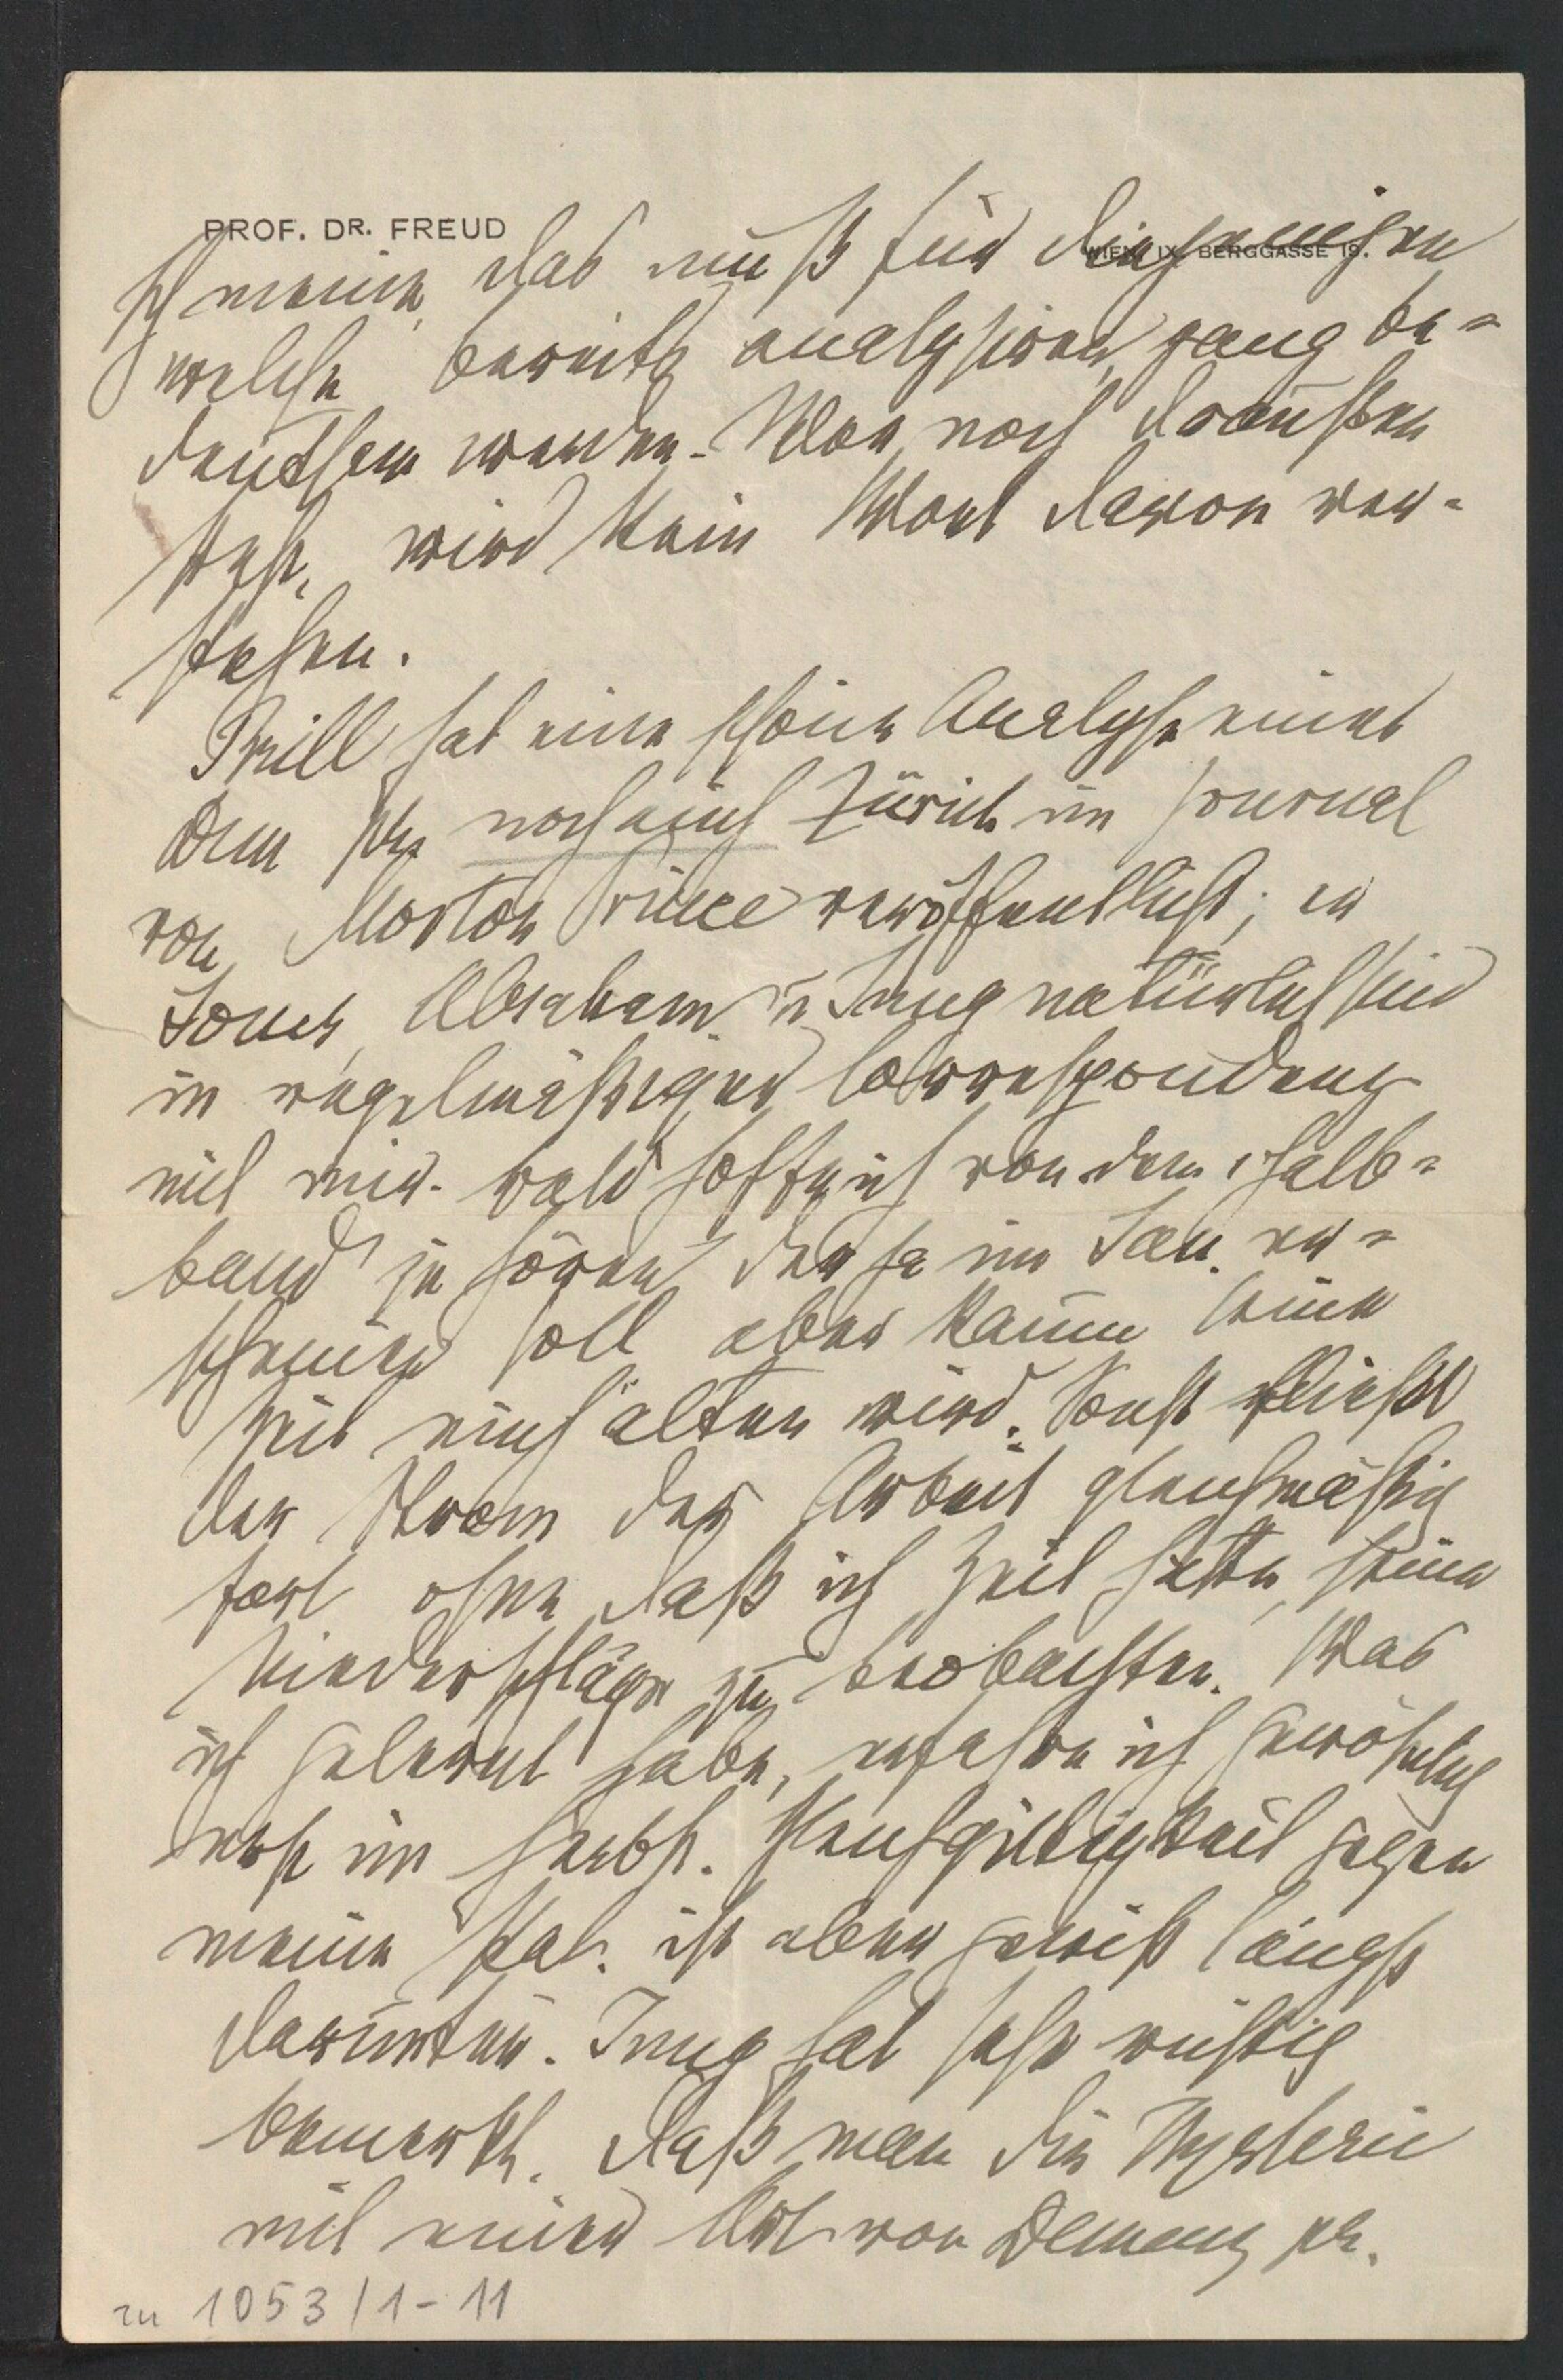 PROF. DR. FREUD
WIEN, IX. BERGGASSE 19.
Ich meine, das muß für diejenigen
welche bereits analysiren, ganz be=
deutsam werden. Wer noch draußen
steht, wird kein Wort davon ver=
stehen.
Brill hat eine schöne Analyse eines
Dem pr noch aus Zürich im Journal
von Morton Prince veröffentlicht; er
Jones, Abraham u Jung natürlich sind
in regelmäßiger Correspondenz
mit mir. Bald hoffe ich von dem Halb=
band zu hören der ja im Jan. er=
scheinen soll aber kaum seine
Zeit einhalten wird. Sonst fließt
der Strom der Arbeit gleichmäßig
fort ohne daß ich Zeit hätte, seine
Niederschläge zu beobachten. Was
ich gelernt habe, erfahre ich gewöhnlich
erst im Herbst. Gleichgiltigkeit gegen
meine ist aber gewiß längst
darunter. Jung hat sehr richtig
bemerkt, daß man die Hysterie
mit einer Art von Demenz pr.
zu 1053/1-11